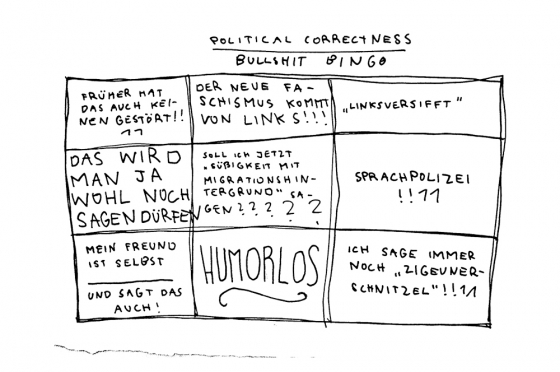 POLITICAL CORRECTNESS
BULLSHIT BINGO
FRÜHER HAT
DAS AUCH KEI-
NEN GESTÖRT!!
11
DER NEUE FA-
SCHISMUS KOMMT
VON LINKS!!!
„LINKSVERSIFFT"
DAS WIRD
MAN JA
WOHL NOCH
SAGEN DÜRFEN
SOLL ICH JETZT
„SÜßIGKEIT MIT
MIGRATIONSHIN-
TERGRUND" SA-
GEN?????
SPRACHPOLIZEI
!!11
MEIN FREUND
IST SELBST
UND SAGT DAS
AUCH!
HUMORLOS
ICH SAGE IMMER
NOCH „ZIGEUNER-
SCHNITZEL"!!11